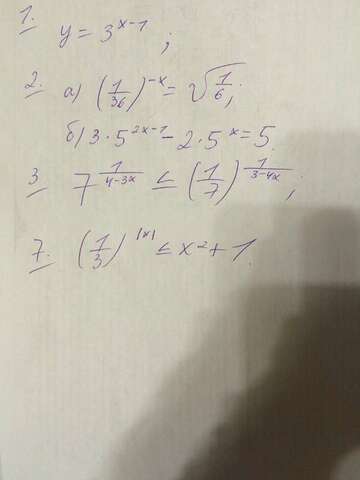 1. y = 3^{x-1};
2. а) (1/36)^{-x} = √(1/6);
б) 3 · 5^{2x-1} - 2 · 5^x = 5.
3. 7^{1/(4-3x)} ≤ (1/7)^{1/(3-4x)};
7. (1/3)^{|x|} ≤ x^2 + 1.